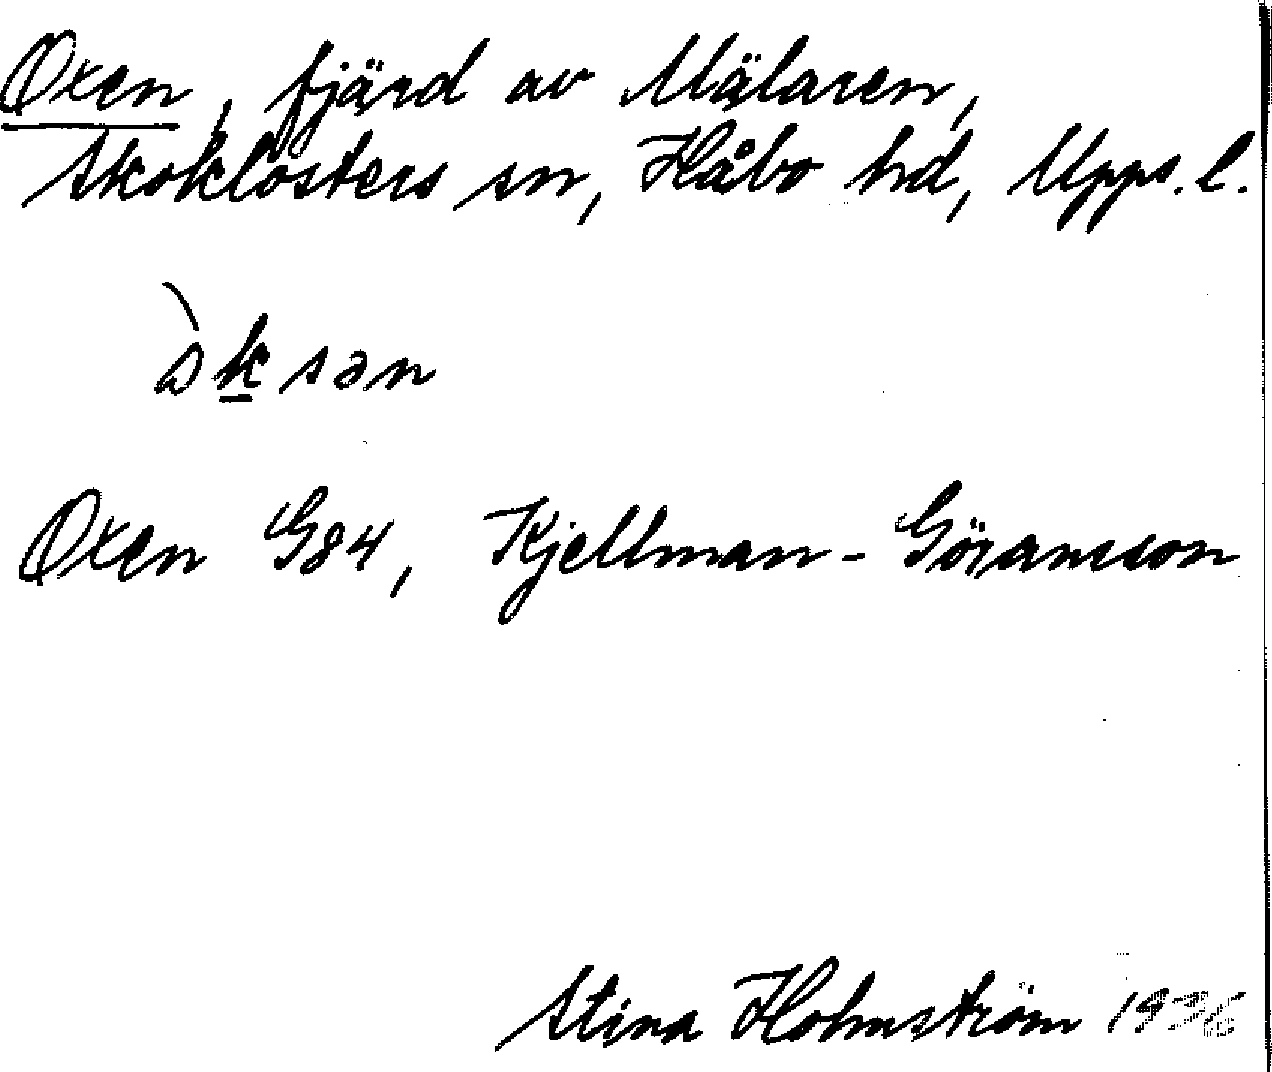 Oxen, fjärd av Mälaren,
Skoklosters sn, Håbo hd, Upps. l.
òksən
Oxen G84, Kjellman-Göransson
Stina Holmström